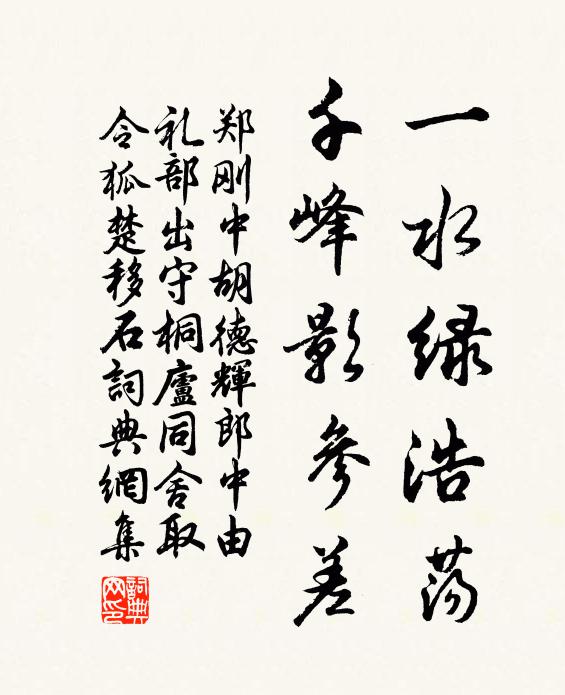 一水绿浩荡
千峰影参差
郑刚中胡德輝郎中由
礼部出守桐廬同舍取
令狐楚移石詞典網集
詞典網印